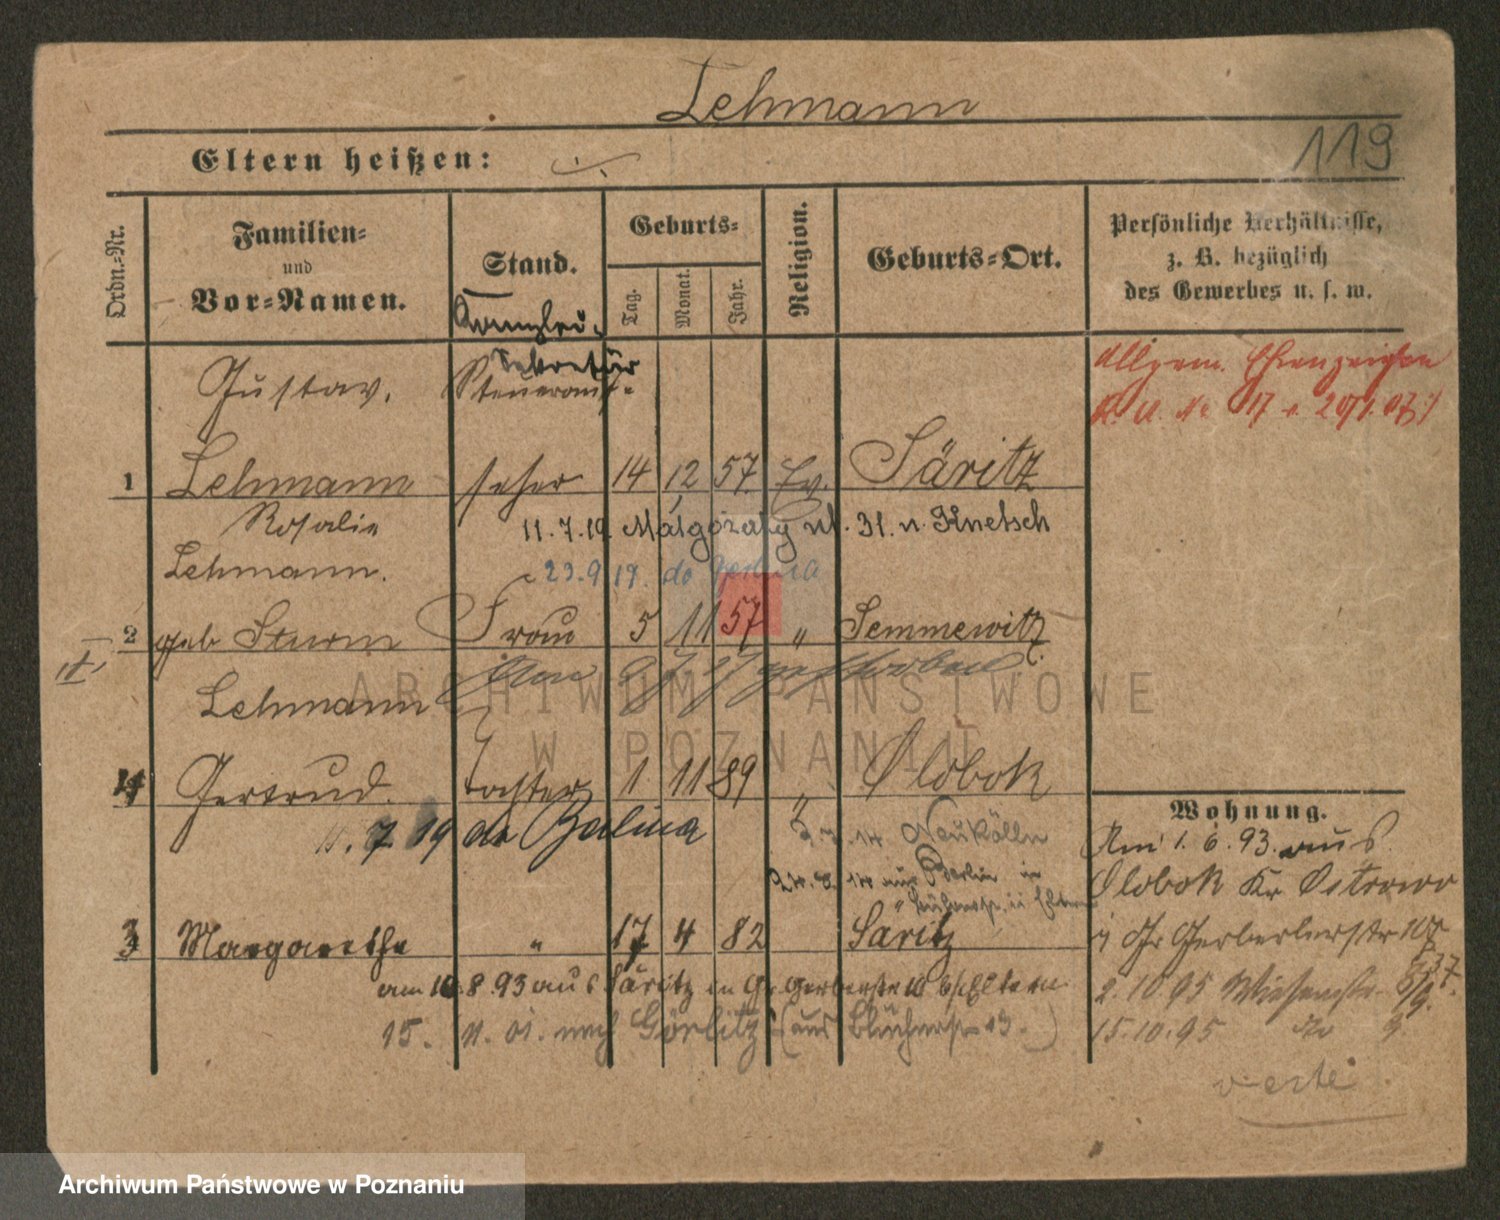 Lehmann
119
Eltern heißen: ./.
Ordn.-Nr.
Familien- und Vor-Namen.
Stand.
Geburts-
Tag.
Monat.
Jahr.
Religion.
Geburts-Ort.
Persönliche Verhältnisse, z. B. bezüglich des Gewerbes u. s. w.
Kanzlei-
Sekretär
Gustav. Steuerauf-
Allgem. Ehrenzeichen
1 Lehmann seher 14 12 57. Ev. Säritz
Rosalie 11.7.19. Małgorzaty ul. 31. n. Knetsch
Lehmann. 23.9.19. do
2 geb Sturm Frau 5 11 57 " Semmewitz
Am gestorben
Lehmann
4 Gertrud. Tochter 1 11 89 " Olobok
11.7.19 do Berlina
14 Neukölln
aus Berlin in
3 Margarethe " 17 4 82 Säritz
am 10.8.93 aus Säritz in Gr. Gerberstr b/Eltern
15. 11. 01. nach Görlitz (aus Blücherstr 13.)
Wohnung.
Am 1.6.93. aus
Olobok Kr Ostrowo
Gr Gerberstr
2.10.95 Wiesenstr
15.10.95
verte
ARCHIWUM PAŃSTWOWE
W POZNANIU
Archiwum Państwowe w Poznaniu